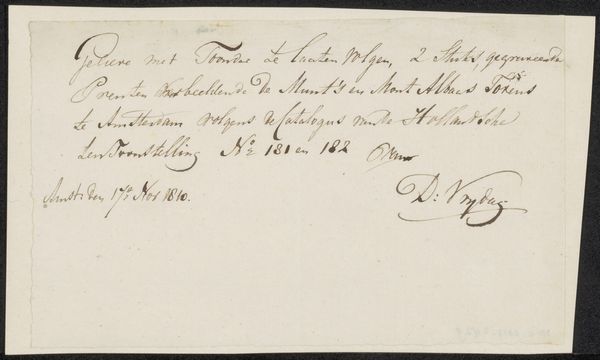 Gelieve met Toonder te laaten volgen, 2 Stuks, gegraveerde
Prenten Verbeeldende De Munt's en Mont Albaas Torens
te Amsterdam volgens de Catalogus van de Hollandsche
ten Toonstelling No 181 en 182
Amstrdam 17e Nov 1810.
D: Vrydag